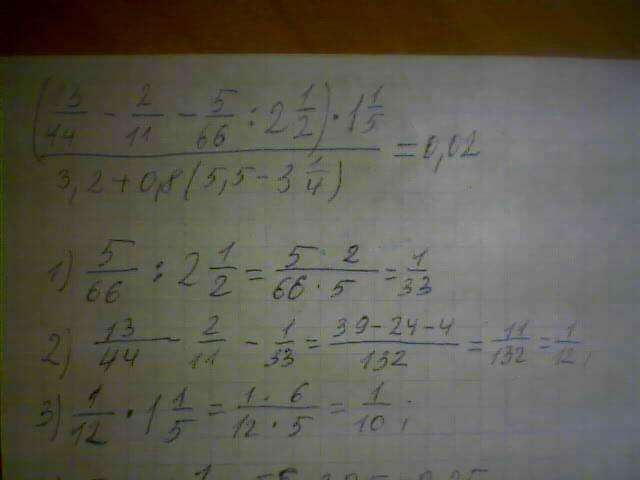 (13/44 - 2/11 - 5/66 : 2 1/2) · 1 1/5
3,2 + 0,8 (5,5 - 3 1/4) = 0,02
1) 5/66 : 2 1/2 = 5 · 2/66 · 5 = 1/33
2) 13/44 - 2/11 - 1/33 = 39-24-4/132 = 11/132 = 1/12,
3) 1/12 · 1 1/5 = 1 · 6/12 · 5 = 1/10;